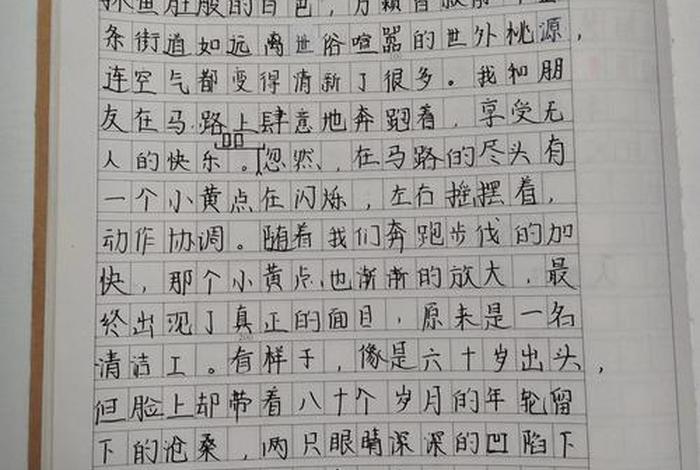 鱼肚般的白色，万籁
条街道如远离世俗喧嚣的世外桃源，
连空气都变得清新了很多。我和朋
友在马路上肆意地奔跑着，享受无
人的快乐。忽然，在马路的尽头有
一个小黄点在闪烁，左右摇摆着，
动作协调。随着我们奔跑步伐的加
快，那个小黄点也渐渐的放大，最
终出现了真正的面目，原来是一名
清洁工。看样子，像是六十岁出头，
但脸上却带着八十个岁月的年轮留
下的沧桑，两只眼睛深深的凹陷下